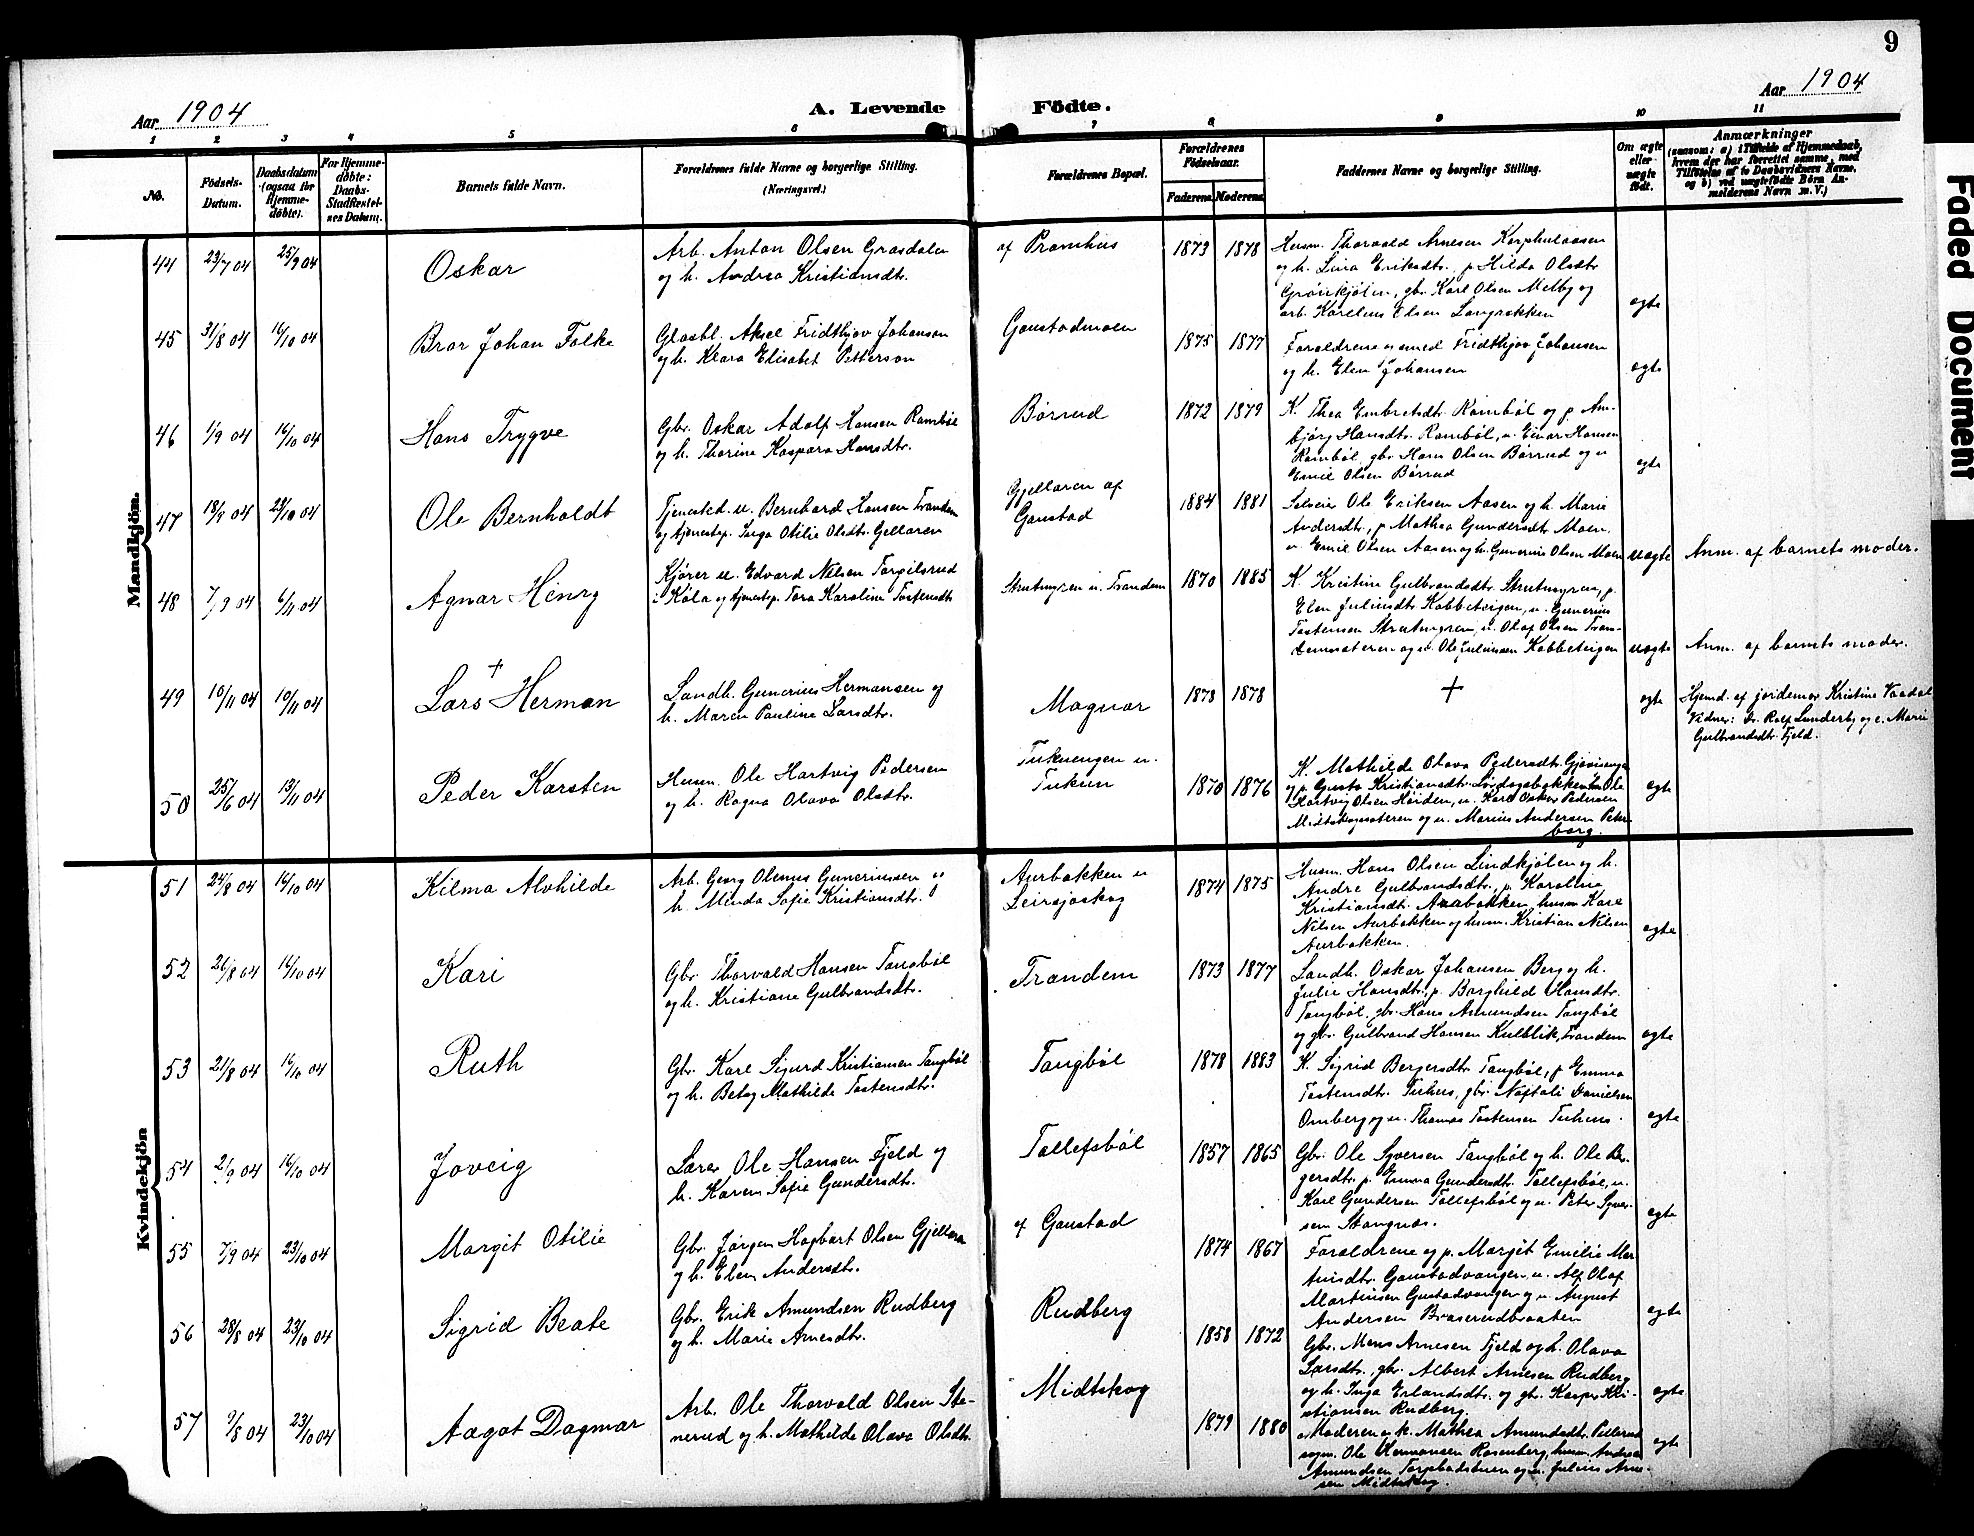 9
Aar 1904
A. Levende Födte.
Aar 1904
1 2 3 4 5 6 7 8 9 10 11
No.
Födsels-
Datum.
Daabsdatum
(ogsaa for
Hjemme-
döbte).
For Hjemme-
döbte:
Daabs-
Stadfæstel-
ses Datum.
Barnets fulde Navn.
Forældrenes fulde Navne og borgerlige Stilling.
(Næringsvei.)
Forældrenes Bopæl.
Forældrenes
Födselsaar.
Faderens. Moderens.
Faddernes Navne og borgerlige Stilling.
Om ægte
eller
uægte
födt.
Anmærkninger
(saasom: a) i Tilfælde af Hjemmedaab,
hvem der har forrettet samme, med
Tilföielse af to Daabsvidners Navne,
og b) ved uægtefödte Börn An-
melderens Navn m. V.)
Mandkjön.
44 23/7 04 25/9 04 Oskar
Arb. Anton Olsen Grasdalen
og h. Andrea Kristiansdtr.
af Pramhus 1873 1878
Husm. Thorvald Arnesen Korphulaasen
og h. Lina Eriksdtr., p Hilda Olsdtr
Grönkjölen, gbr Karl Olsen Melby og
arb. Karelius Elsen Langrækken
ægte
45 31/8 04 16/10 04 Bror Johan Folke
Glasbl. Aksel Fridthjov Johanson
og h. Klara Elisabet Petterson
Gaustadmoen 1875 1877
Forældrene og smed Fridthjov Johansen
og h. Elen Johansen
ægte
46 1/9 04 16/10 04 Hans Trygve
Gbr. Oskar Adolf Hansen Ramböl
og h. Thorine Kaspara Hansdtr.
Börrud 1872 1879
K. Thea Embretsdtr. Ramböl og p. Am-
björg Hansdtr. Ramböl, u. Einar Hansen
Ramböl, gbr. Hans Olsen Börrud og u
Emil Olsen Börrud
ægte
47 18/9 04 23/10 04 Ole Bernholdt
Tjenestek. u. Bernhard Hansen Tranden
og tjenestep. Inga Otilie Olsdtr. Gjellaren
Gjellaren af
Gaustad 1884 1881
Selveier Ole Eriksen Aasen og h. Marie
Andersdtr., p Mathea Gundersdtr Moen.
u. Emil Olsen Aasen og h. Gunerius Olsen Moen
uægte
Anm. af barnets moder.
48 7/9 04 6/11 04 Agnar Henry
Kjörer u. Edvard Nilsen Torgilsrud
i Köla og tjenestep. Tora Karoline Tostensdtr
Strutmyren u. Trandem 1870 1885
K. Kristine Gulbrandsdtr. Strutmyren, p.
Elen Juliusdtr Kobbeteigen, u. Gunerius
Tostensen Strutmyren, u. Olaf Olsen Tran-
demsæteren og u. Ole Juliussen Kobbeteigen
uægte
Anm. af barnets moder.
49 10/11 04 10/11 04 Lars + Herman
Landh. Gunerius Hermansen og
h. Maren Pauline Larsdtr.
Magnor 1873 1878
+
ægte
Hjemd. af jordemor Kristine Vaadal
Vidner: Dr. Rolf Lunderby og e. Marie
Gulbrandsdtr. Fjeld.
50 25/6 04 13/11 04 Peder Karsten
Husm. Ole Hartvig Pedersen
og h. Ragna Olava Olsdtr.
Tukuengen u.
Tukun 1870 1876
K. Mathilde Olava Pedersdtr.
og p. Gusta Kristiansdtr. Lördagsbakken Ole
Hartvig Olsen Heiden, u. Karl Oskar Pedersen
Midtskogsæteren og u. Marius Andersen Peter-
borg.
ægte
Kvindekjön
51 24/8 04 16/10 04 Kilma Alvhilde
Arb. Georg Olenus Gunerinssen og
h. Minda Sofie Kristiansdtr.
Aurbakken u
Leirsjöskog 1874 1875
Husm. Hans Olsen Lindkjölen og h.
Andre Gulbrandsdtr., p. Karoline
Kristiansdt. Aurbakken, husm Karl
Nilsen Aurbakken og husm. Kristian Nilsen
Aurbakken.
ægte
52 26/8 04 16/10 04 Kari
Gbr. Thorvald Hansen Tangböl
og h. Kristiane Gulbrandsdtr.
Trandem 1873 1877
Landh. Oskar Johansen Berg og h.
Julie Hansdtr., p. Borghild Hansdtr.
Tangböl, gbr. Hans Asmundsen Tangböl
og gbr. Gulbrand Hansen Kulblik, Trandem
ægte
53 21/8 04 16/10 04 Ruth
Gbr. Karl Sigurd Kristiansen Tangböl
og h. Betsy Mathilde Tostensdtr.
Tangböl 1878 1883
K. Sigrid Bergersdtr. Tangböl, p Emma
Tostensdtr. Tukun, gbr. Naftali Danielsen
Omberg og u. Thomas Tostensen Tukun.
ægte
54 2/9 04 16/10 04 Joveig
Lærer Ole Hansen Fjeld og
h. Karen Sofie Gundersdtr.
Tollefsböl 1857 1865
Gbr. Ole Syversen Tangböl og h. Ole Ber-
gersdtr. p. Emma Gundersdt. Tollefsböl, u.
Karl Gundersen Tollefsböl og u. Peter Syver-
sen Stangnæs.
ægte
55 7/9 04 23/10 04 Margit Otilie
Gbr. Jörgen Hagbart Olsen Gjellaren
og h. Elen Andersdtr.
af Gaustad 1874 1867
Forældrene og p. Margit Emilie Mar-
tinsdtr. Gaustadvangen, u. Alf Olaf
Martinsen Gustadvangen og u August
Andersen Braserudbraaten
ægte
56 28/8 04 23/10 04 Sigrid Beate
Gbr. Erik Amundsen Rudberg
og h. Marie Arnesdtr.
Rudberg 1858 1872
Gbr. Mens Arnesen Fjeld og h. Olava
Larsdtr., gbr. Albert Arnesen Rudberg
og h. Inga Erlandsdtr. og gbr. Kasper Kri-
stiansen Rudberg.
ægte
57 9/8 04 23/10 04 Aagot Dagmar
Arb. Ole Thorvald Olsen Ste-
nerud og h. Mathilde Olava Olsdtr.
Midtskog 1879 1880
Moderen og k. Mathea Amundsdtr. Pellerud
sagm. Ole Hermansen Rosenberg, husm. Andreas
Amundsen Torpbadstuen og u. Julius Arne-
sen Midtskog
ægte
Faded Document